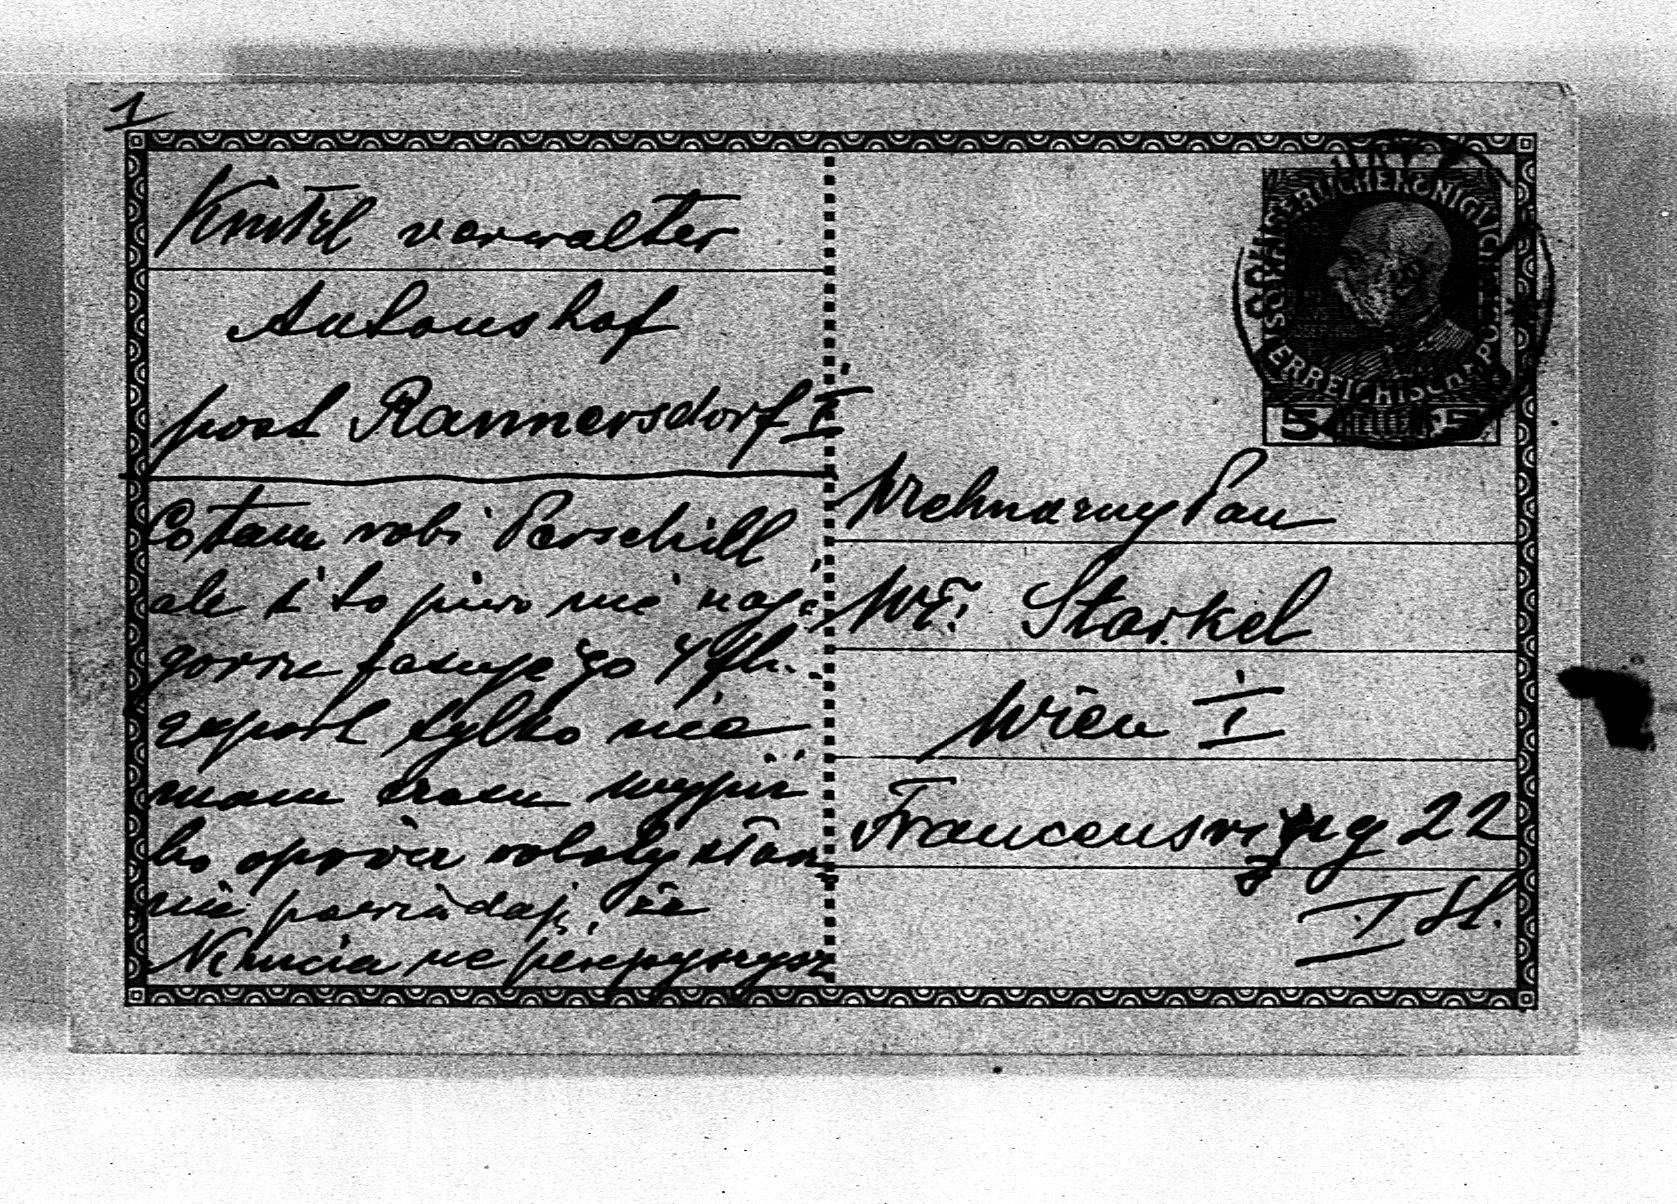 1
Knittel verwalter
Antonshof
post Rannersdorf I
Co tam robi Perschill
ale i to piwo nie naj-
gorsze fasuję go 4 fl.
export tylko nie
mam czasu wypić
bo oprócz roboty
nie powiadaj że
Niemcia nie
Wielmożny Pan
Wł. Starkel
Wien I
Francensring 22
I St.
KAISERLICHE KÖNIGLICHE
ÖSTERREICHISCHE POST
5 HELLER 5